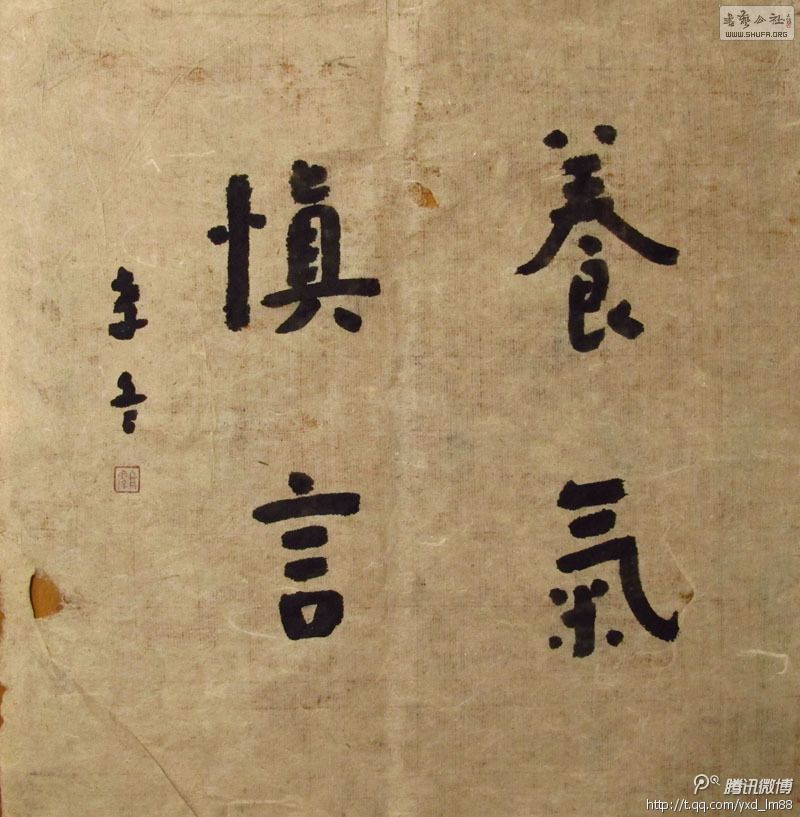 養氣
慎言
書藝公社
WWW.SHUFA.ORG
腾讯微博
http://t.qq.com/yxd_lm88